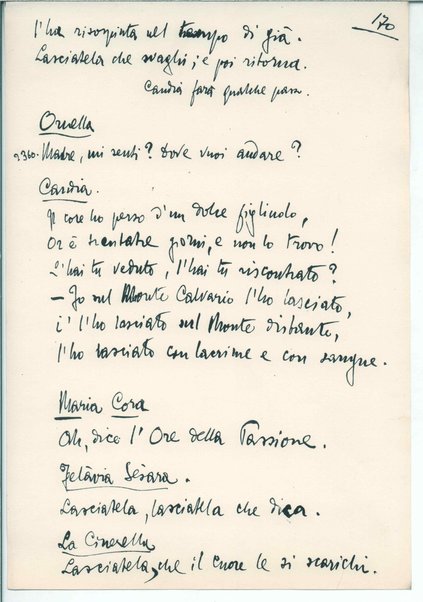 170
l'ha risospinta nel tempo di già.
Lasciatela che svaghi; e poi ritorna.
Candia farà qualche passo.
Ornella
2360. Madre, mi senti? Dove vuoi andare?
Candia.
Il core ho perso d'un dolce figliuolo,
Or è trentatre giorni, e non lo trovo!
L'hai tu veduto, l'hai tu riscontrato?
— Io sul Monte Calvario l'ho lasciato,
i' l'ho lasciato sul Monte distante,
l'ho lasciato con lacrime e con sangue.
Maria Cora
Ah, dice l'Ore della Passione.
Felàvia Sèsara.
Lasciatela, lasciatela che dica.
La Cinerella
Lasciatela, che il cuore le si scarichi.